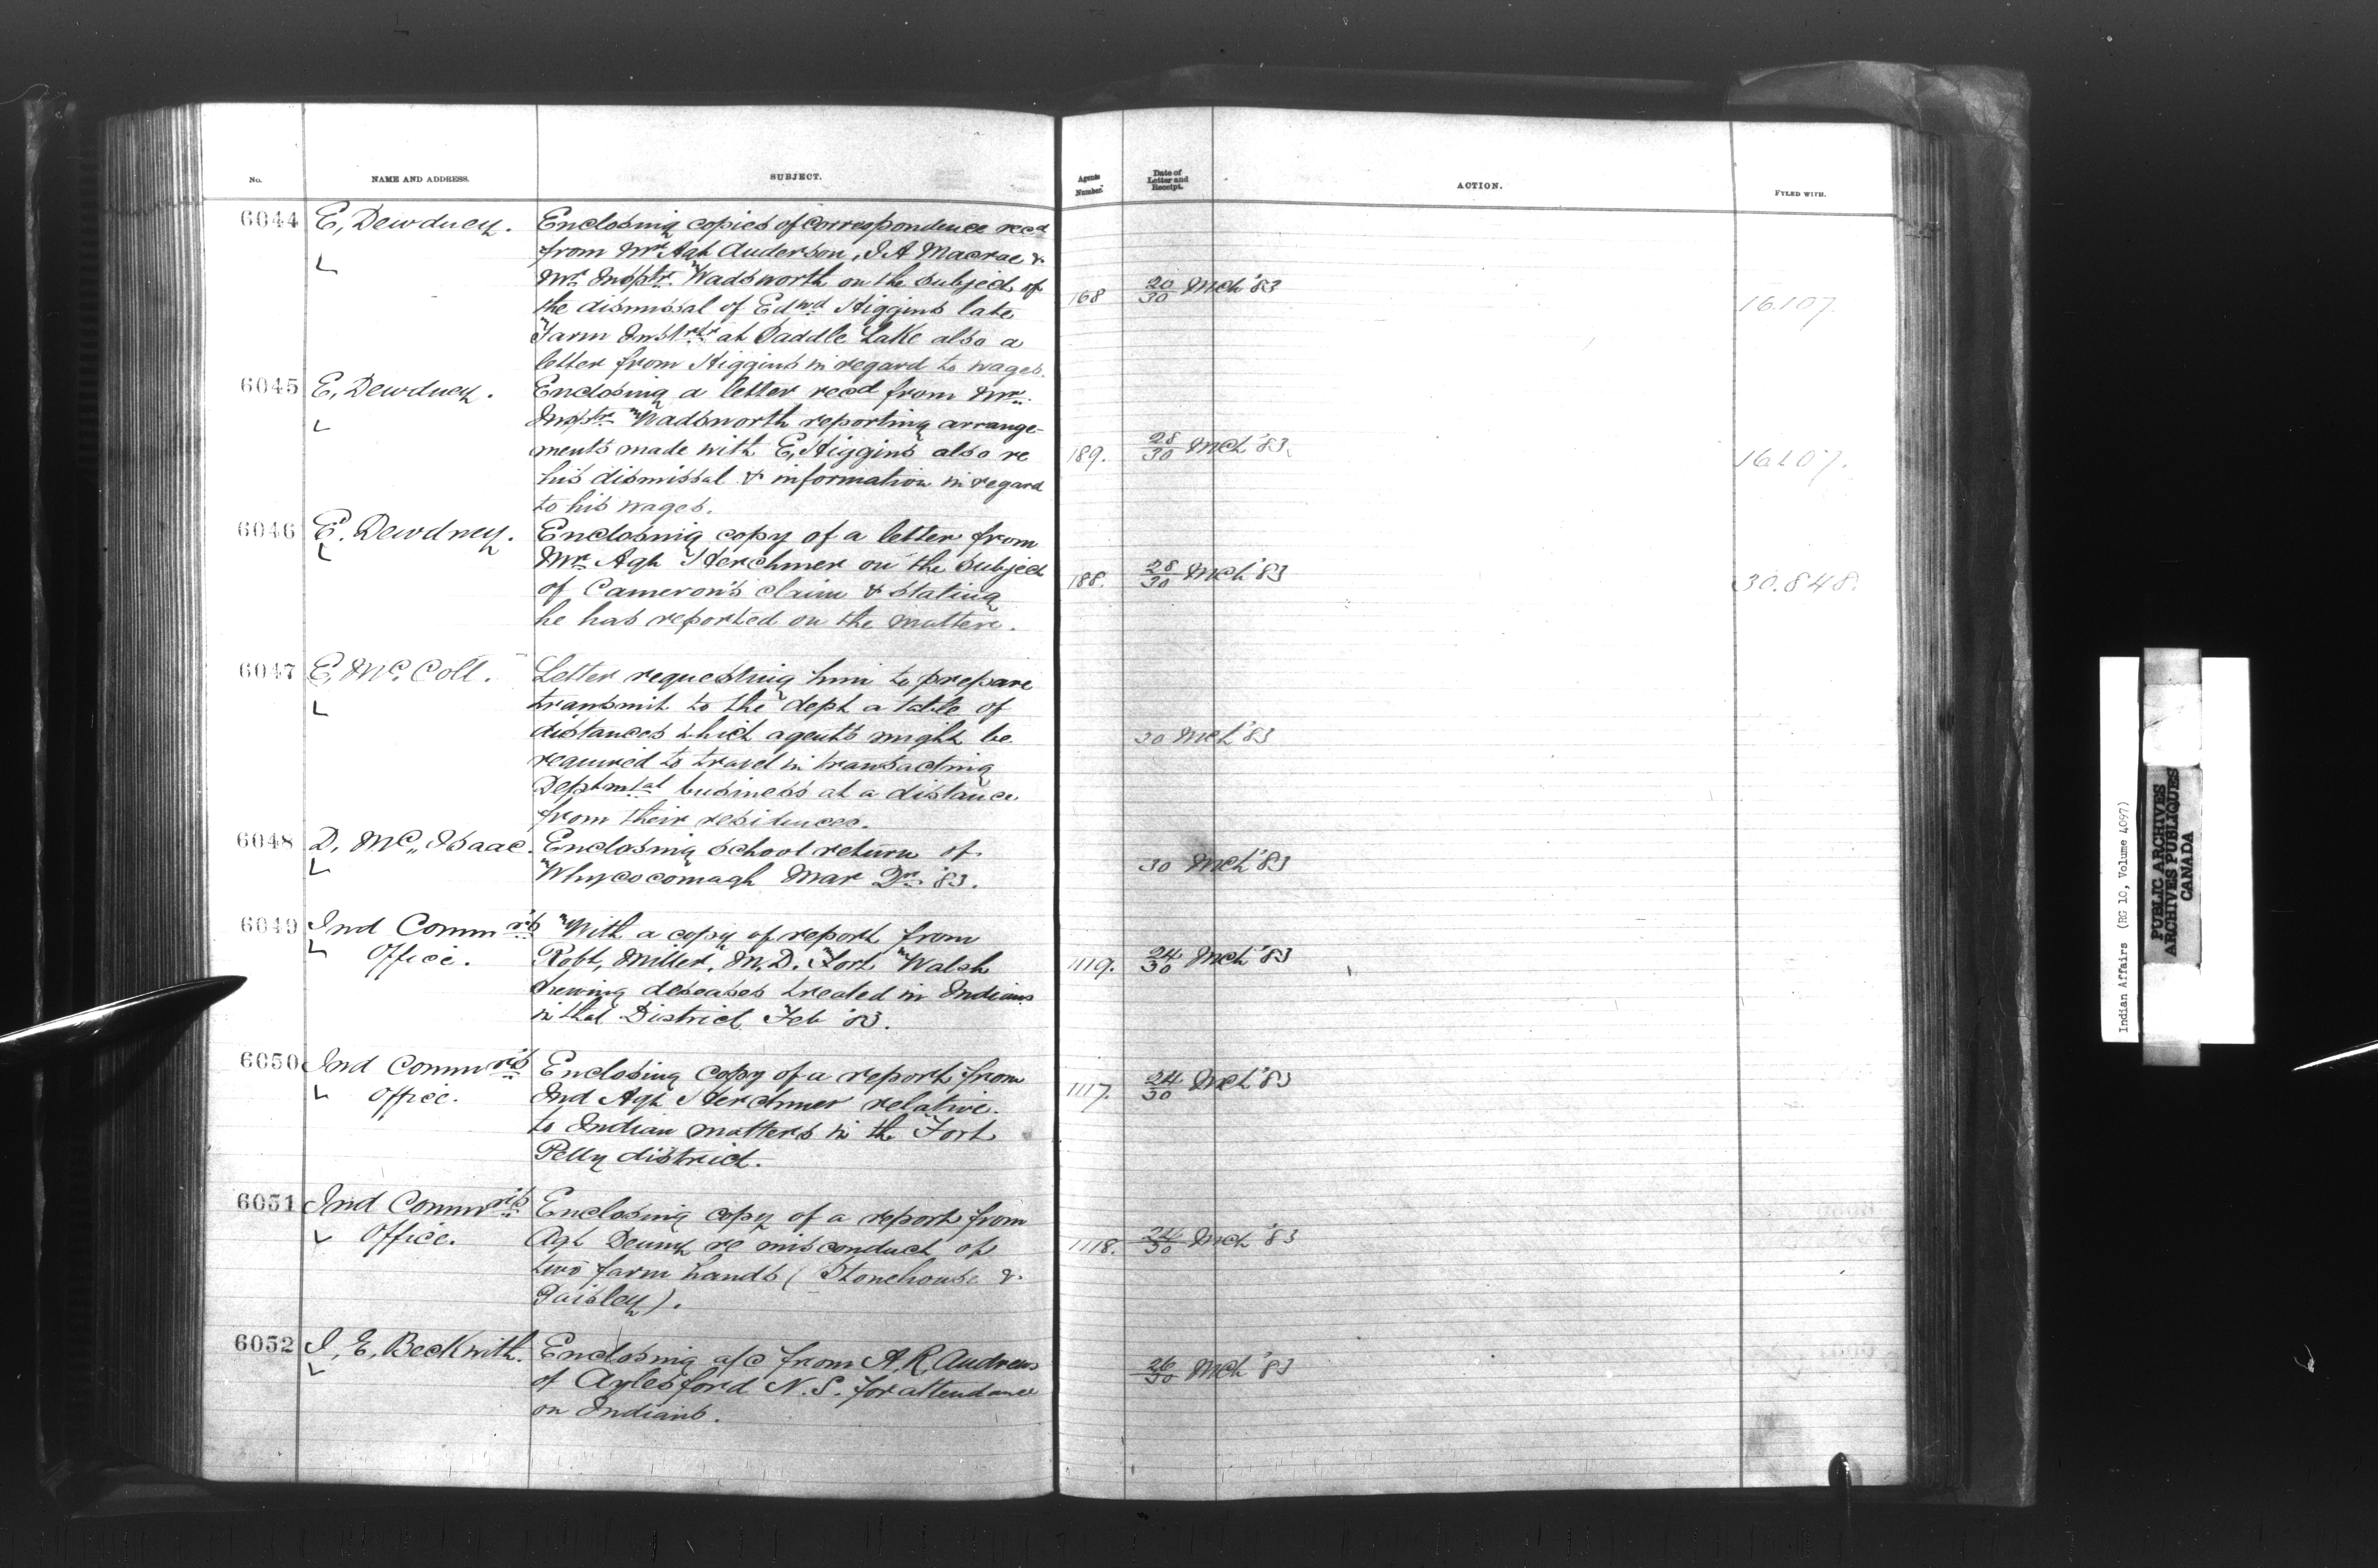 No. NAME AND ADDRESS. SUBJECT. Agents Number. Date of Letter and Receipt. ACTION. FYLED WITH.
6044 E, Dewdney. Enclosing copies of correspondence recd
from Mr Agt Anderson, J A Macrae &
Mr Insptr Wadsworth on the subject of
168 20/30 Mch '83 16.107.
the dismissal of Edwd Higgins late
Farm Instrtr at Saddle Lake also a
letter from Higgins in regard to wages.
6045 E, Dewdney. Enclosing a letter recd from Mr
Insptr Wadsworth reporting arrange-
ments made with E, Higgins also re
189. 28/30 Mch '83 16.107.
his dismissal & information in regard
to his wages.
6046 E. Dewdney. Enclosing copy of a letter from
Mr Agt Herchmer on the subject
188. 28/30 Mch '83 30.848.
of Cameron's claim & stating
he has reported on the matter.
6047 E, Mc. Coll. Letter requesting him to prepare
transmit to the dept a table of
distances which agents might be
30 Mch '83
required to travel in transacting
Deptmtal business at a distance
from their residences.
6048 D, Mc,, Isaac. Enclosing school return of
Whycocomagh Mar Qr '83.
30 Mch '83
6049 Ind Commrs With a copy of report from
Office. Robt, Miller, M,D. Fort Walsh
1119. 24/30 Mch '83
shewing deseases treated in Indians
in that District Feb '83.
6050 Ind Commrs Enclosing copy of a report from
Office. Ind Agt Herchmer relative
1117. 24/30 Mch '83
to Indian matters in the Fort
Pelly district.
6051 Ind Commrs Enclosing copy of a report from
Office. Agt Denny re misconduct of
1118. 24/30 Mch '83
two farm hands (Stonehouse &
Paisley).
6052 J, E, Beckwith. Enclosing a/c from A, R, Andrews
of Aylesford N.S. for attendance
26/30 Mch '83
on Indians.
Indian Affairs (RG 10, Volume 4097)
PUBLIC ARCHIVES
ARCHIVES PUBLIQUES
CANADA